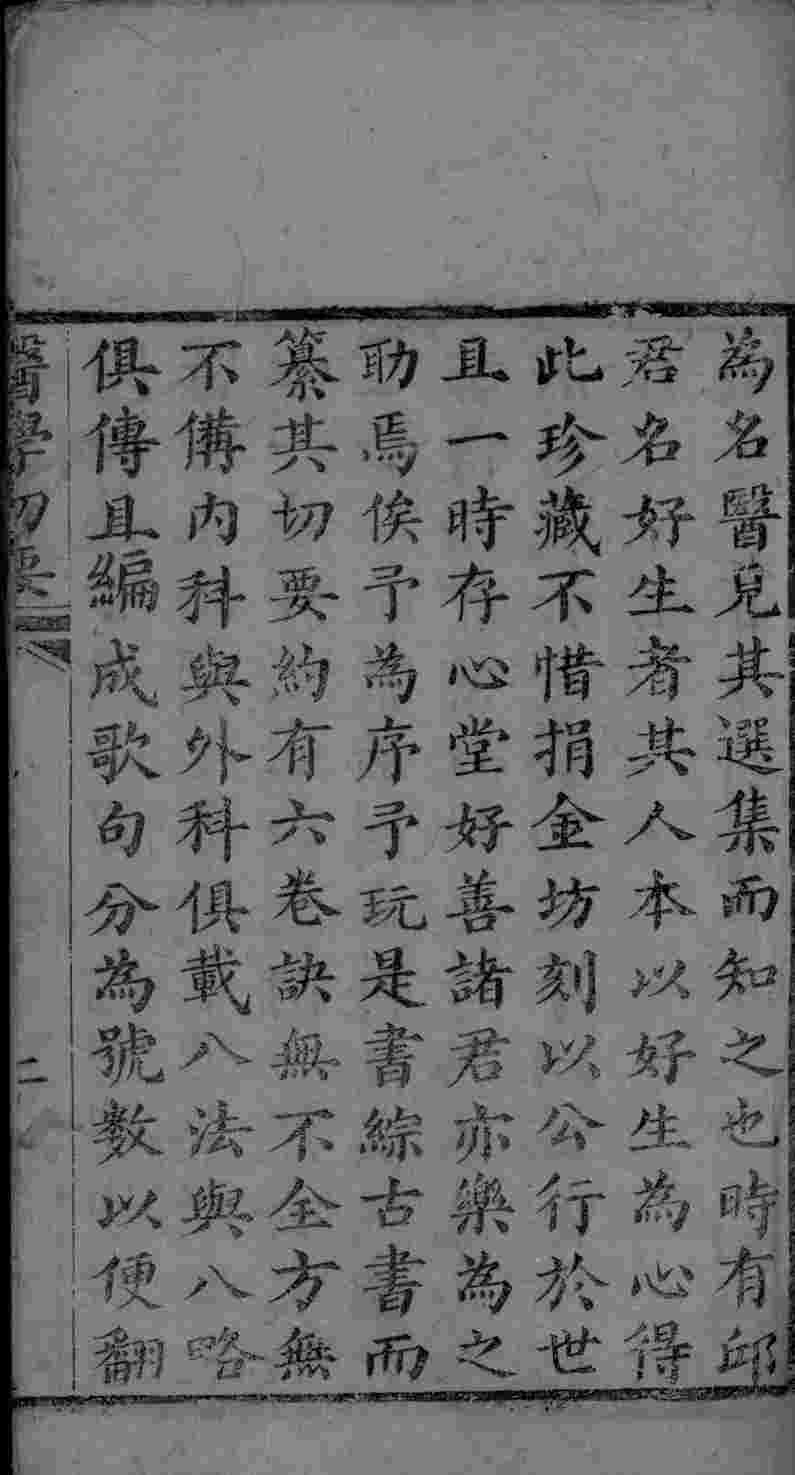 為名醫見其選集而知之也時有邱
君名好生者其人本以好生為心得
此珍藏不惜捐金坊刻以公行於世
且一時存心堂好善諸君亦樂為之
助焉俟予為序予玩是書綜古書而
纂其切要約有六卷訣無不全方無
不備內科與外科俱載八法與八略
俱傳且編成歌句分為號數以便翻
醫學切要
二